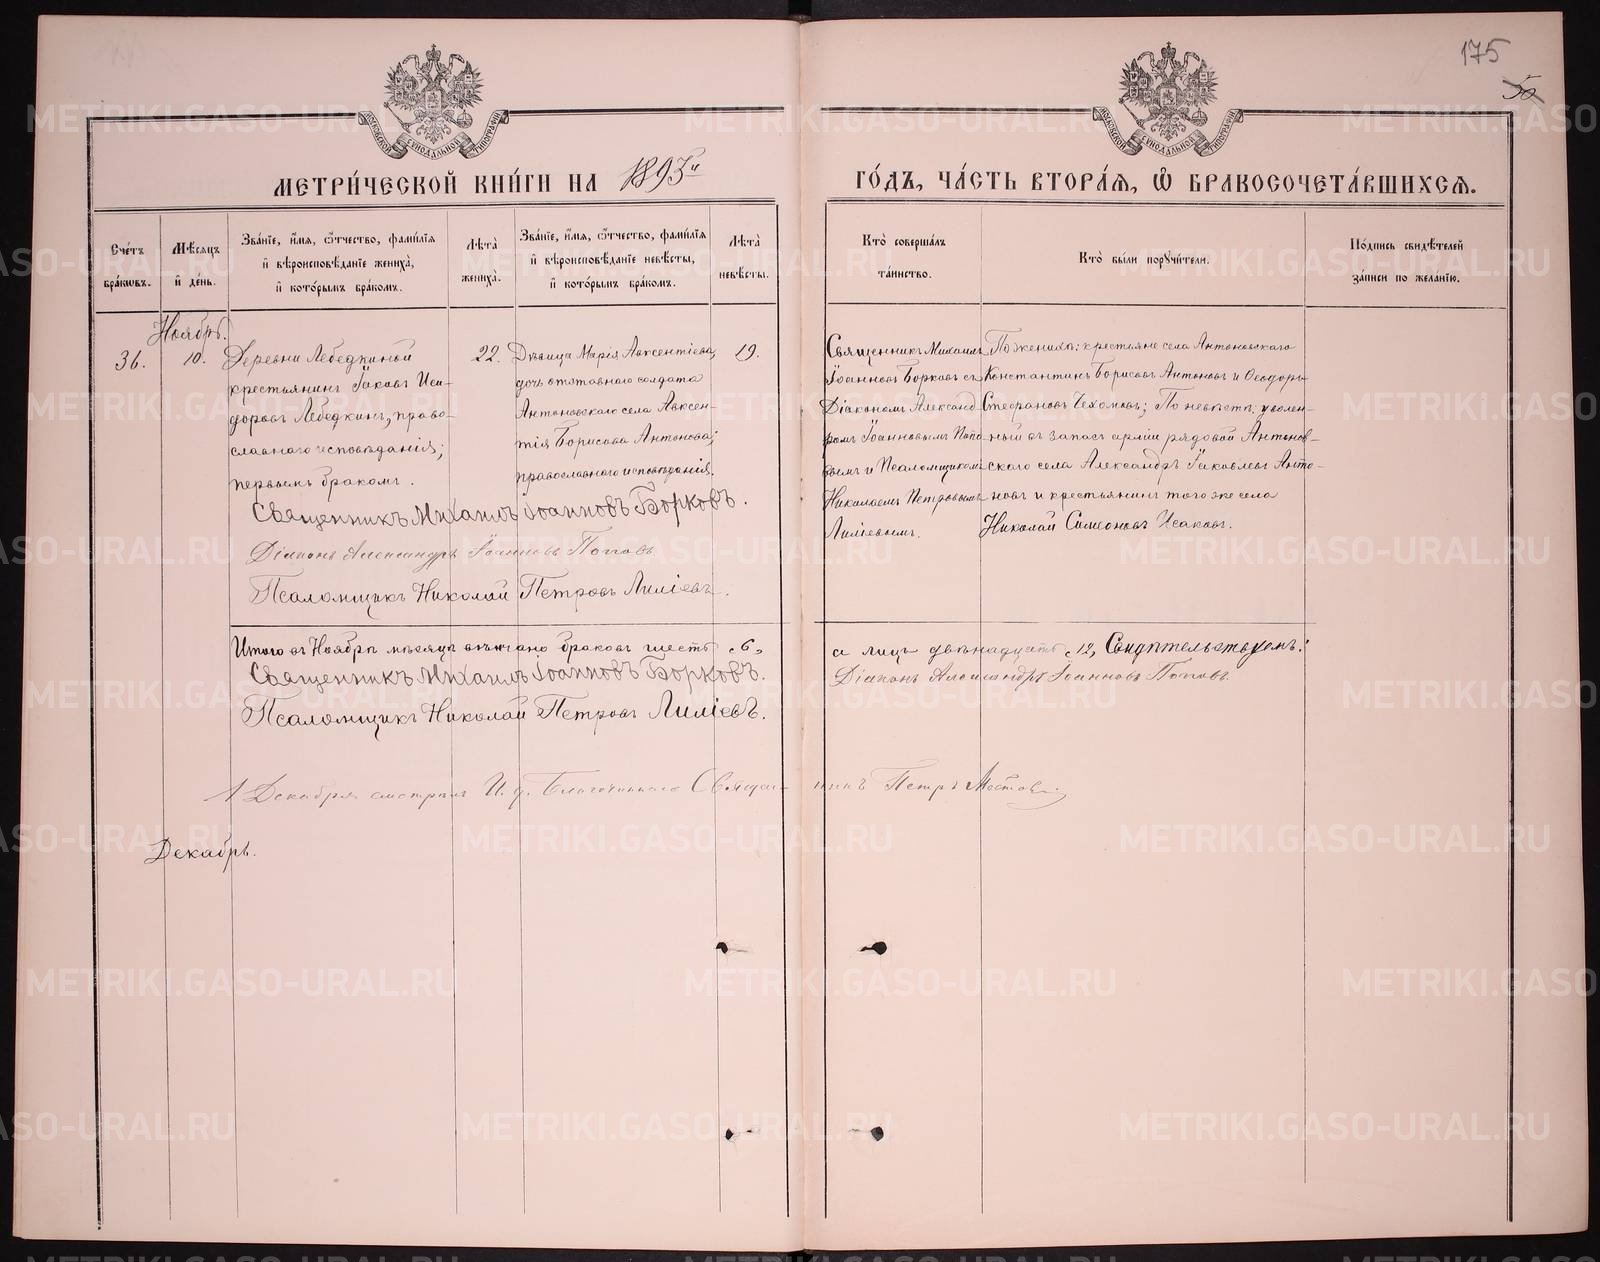 175
50
МОСКОВСКОЙ СУНОДАЛЬНОЙ ТИПОГРАФИИ
МОСКОВСКОЙ СУНОДАЛЬНОЙ ТИПОГРАФИИ
МЕТРИ́ЧЕСКОЙ КНИ́ГИ НА 1893й
ГО́ДЪ, ЧА́СТЬ ВТОРА́Я, Ѡ҆ БРАКОСОЧЕТА́ВШИХСЯ.
Сче́тъ
бра́кѡвъ.
Мѣ́сяцъ
и҆ де́нь.
Зва́нїе, и҆́мя, ѻ҆́тчество, фами́лїя
и҆ вѣроисповѣ́данїе жениха̀,
и҆ кото́рымъ бра́комъ.
Лѣ̀та
жениха̀.
Зва́нїе, и҆́мя, ѻ҆́тчество, фами́лїя
и҆ вѣроисповѣ́данїе невѣ́сты,
и҆ кото́рымъ бра́комъ.
Лѣ̀та
невѣ́сты.
Кто̀ соверша́лъ
та́инство.
Кто̀ бы́ли порꙋчи́тели.
По́дпись свидѣ́телей
за́писи по жела́нїю.
Ноябрь.
36.
10.
Деревни Лебедкиной
крестьянинъ Іаковъ Иси-
доровъ Лебедкинъ, право-
славнаго исповѣданія;
первымъ бракомъ.
22.
Дѣвица Марія Авксентіева,
дочь отставнаго солдата
Антоновскаго села Авксен-
тія Борисова Антонова;
православнаго исповѣданія.
19.
Священникъ Михаилъ
Іоанновъ Борковъ съ
Діакономъ Александ-
ромъ Іоанновымъ Попо-
вымъ и Псаломщикомъ
Николаемъ Петровымъ
Лиліевымъ.
По женихѣ: крестьяне села Антоновскаго
Константинъ Борисовъ Антоновъ и Ѳеодоръ
Стефановъ Чехомовъ; По невѣстѣ: уволен-
ный въ запасъ арміи рядовой Антонов-
скаго села Александръ Іаковлевъ Анто-
новъ и крестьянинъ того же села
Николай Симеоновъ Исаковъ.
Священникъ Михаилъ Іоанновъ Борковъ.
Діаконъ Александръ Іоанновъ Поповъ
Псаломщикъ Николай Петровъ Лиліевъ.
Итого въ Ноябрѣ мѣсяцѣ вѣнчано браковъ шесть "6"
а лицъ двѣнадцать "12", Свидѣтельствуемъ:
Священникъ Михаилъ Іоанновъ Борковъ.
Діаконъ Александръ Іоанновъ Поповъ.
Псаломщикъ Николай Петровъ Лиліевъ.
1 Декабря смотрѣлъ И. д. Благочиннаго Священ-
никъ Петръ
Декабрь.
METRIKI.GASO-URAL.RU